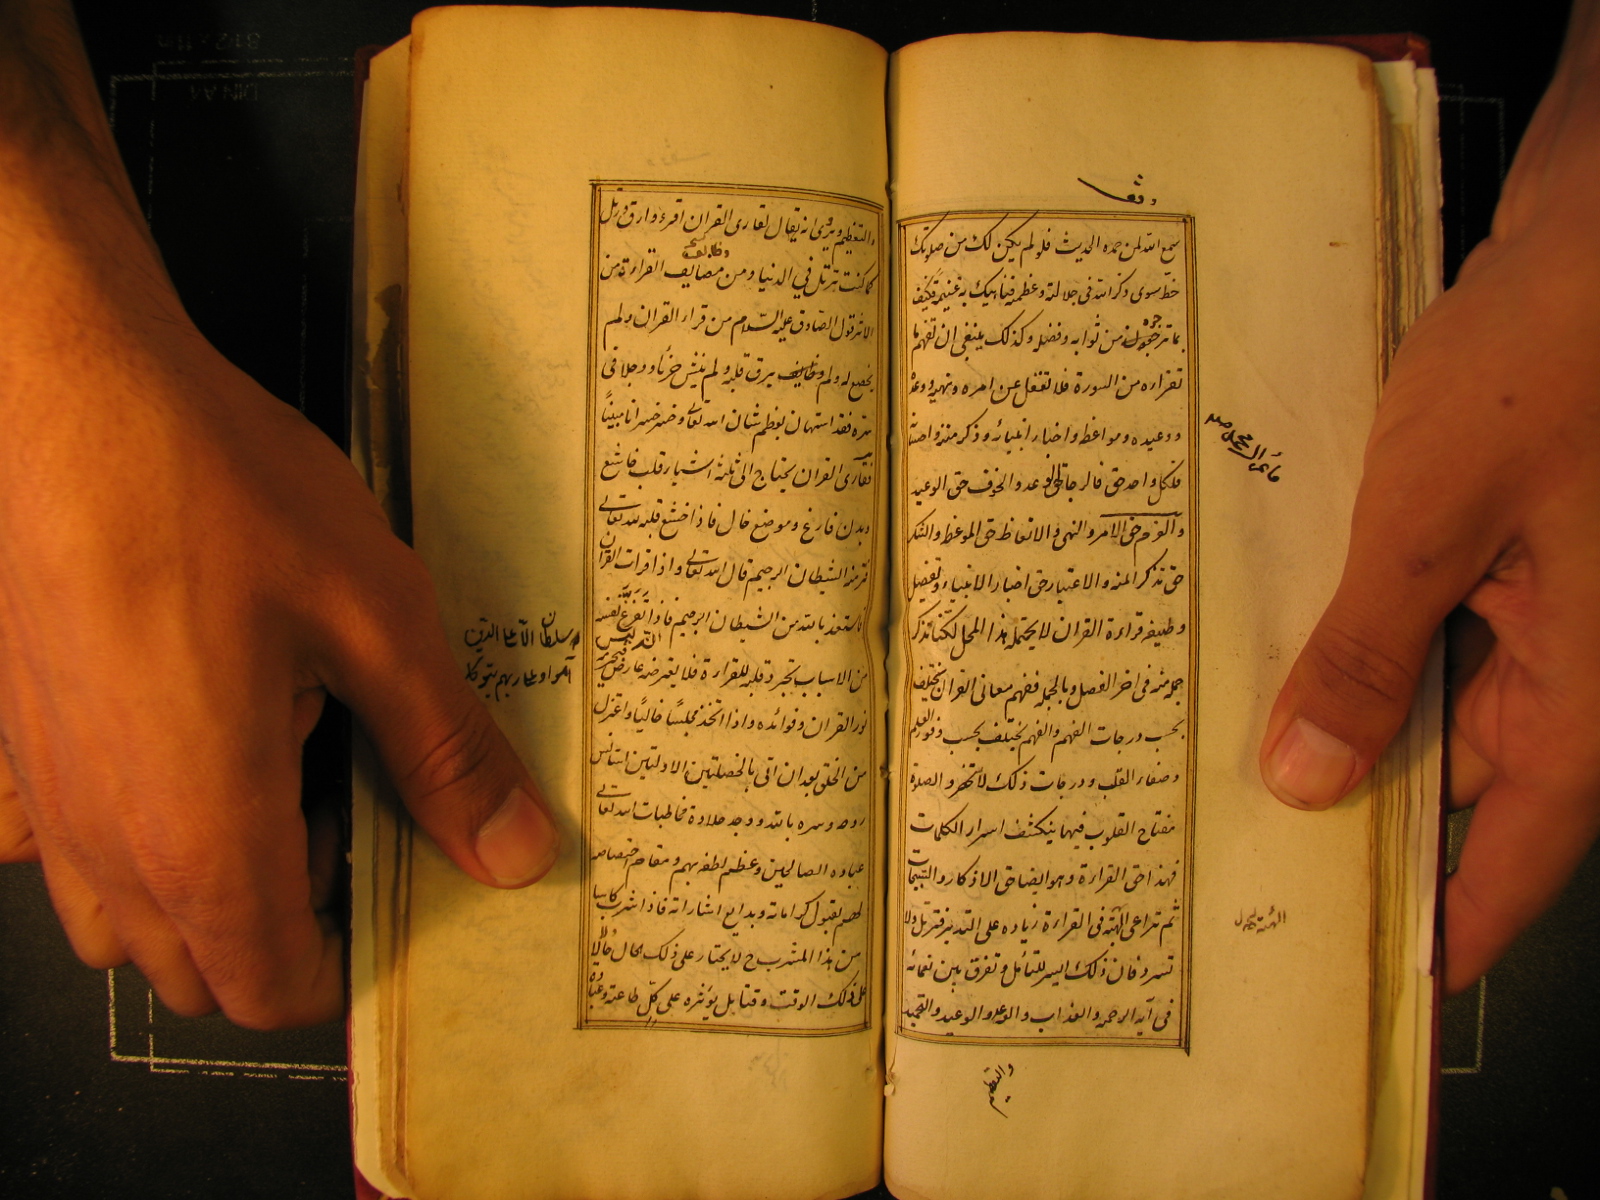 وقف
سمع الله لمن حمده الحديث فلو لم يكن لك من صلوتك
حظ سوى ذكر الله في جلاله وعظمته فناهيك به غنيمة فكيف
بما ترجوه من ثوابه وفضله وكذلك ينبغي ان تفهم ما
تقراءه من السورة فلا تغفل عن امره ونهيه ووعده
ووعيده ومواعظه واخبار انبيائه وذكر مننه واحسانه
فلكل واحد حق فالرجا حق الوعد والخوف حق الوعيد
والعزم حق الامر والنهي والاتعاظ حق الموعظة والشكر
حق تذكر المنة والاعتبار حق اخبار الانبياء وتفصيل
وظيفة قراءة القران لا يحتمله هذا المحل لكننا نذكر
جملة منه في اخر الفصل وبالجملة ففهم معاني القران يختلف
بحسب درجات الفهم والفهم يختلف بحسب وفور العلم
وصفاء القلب ودرجات ذلك لا تنحصر والصلوة
مفتاح القلوب فيها ينكشف اسرار الكلمات
فهذا حق القراءة وهو ايضا حق الاذكار والتسبيحات
ثم تراعي الهيبة في القراءة زيادة على التدبر فترتل ولا
تسرد فان ذلك ايسر للتأمل وتفرق بين نغماته
في آية الرحمة والعذاب والوعد والوعيد والتحميد
والتعظيم
والتعظيم وروي انه يقال لقارى القران اقرء وارق ورتل
كما كنت ترتل في الدنيا ومن وظائف القراءة من
الاثر قول الصادق عليه السلام من قراء القران ولم
يخضع له ولم يرق قلبه ولم ينشئ حزنا ووجلا في
سره فقد استهان بعظم شان الله تعالى وخسر خسرانا مبينا
فقارئ القران يحتاج الى ثلثة اشياء قلب خاشع
وبدن فارغ وموضع خال فاذا خشع قلبه لله تعالى
فر منه الشيطان الرجيم قال الله تعالى واذا قرات القران
فاستعذ بالله من الشيطان الرجيم فاذا تفرغ نفسه
انه ليس له سلطان على الذين
آمنوا وعلى ربهم يتوكلون
من الاسباب تجرد قلبه للقراءة فلا يعترضه عارض فيحرمه
نور القران وفوائده واذا اتخذ مجلسا خاليا واعتزل
من الخلق بعد ان اتى بالخصلتين الاولتين استانس
روحه وسره بالله ووجد حلاوة مخاطبات الله تعالى
عباده الصالحين وعظم لطفه بهم ومقام اختصاصه
لهم بقبول كراماته وبدايع اشاراته فاذا شرب كاسا
من هذا المشرب ح لا يختار على ذلك الحال حالا
على ذلك الوقت وقتا بل يؤثره على كل طاعة وعبادة